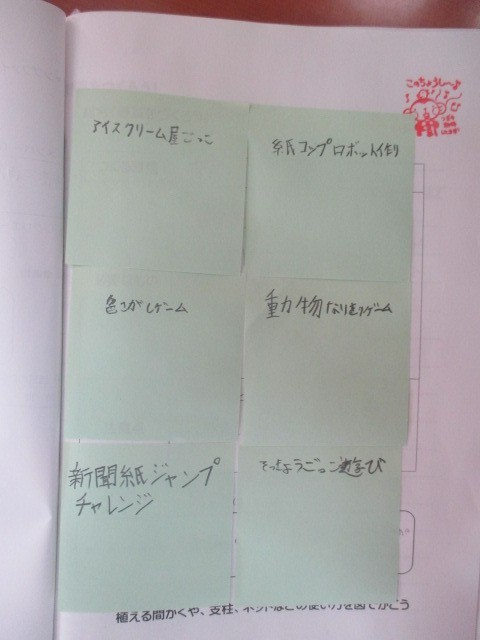 こっちょうしーよ
アイスクリーム屋ごっこ
紙コップロボット作り
色さがしゲーム
動物なりきりゲーム
新聞紙ジャンプ
チャレンジ
遊び
植える間かくや、支柱、ネットなどの使い方を図でかこう